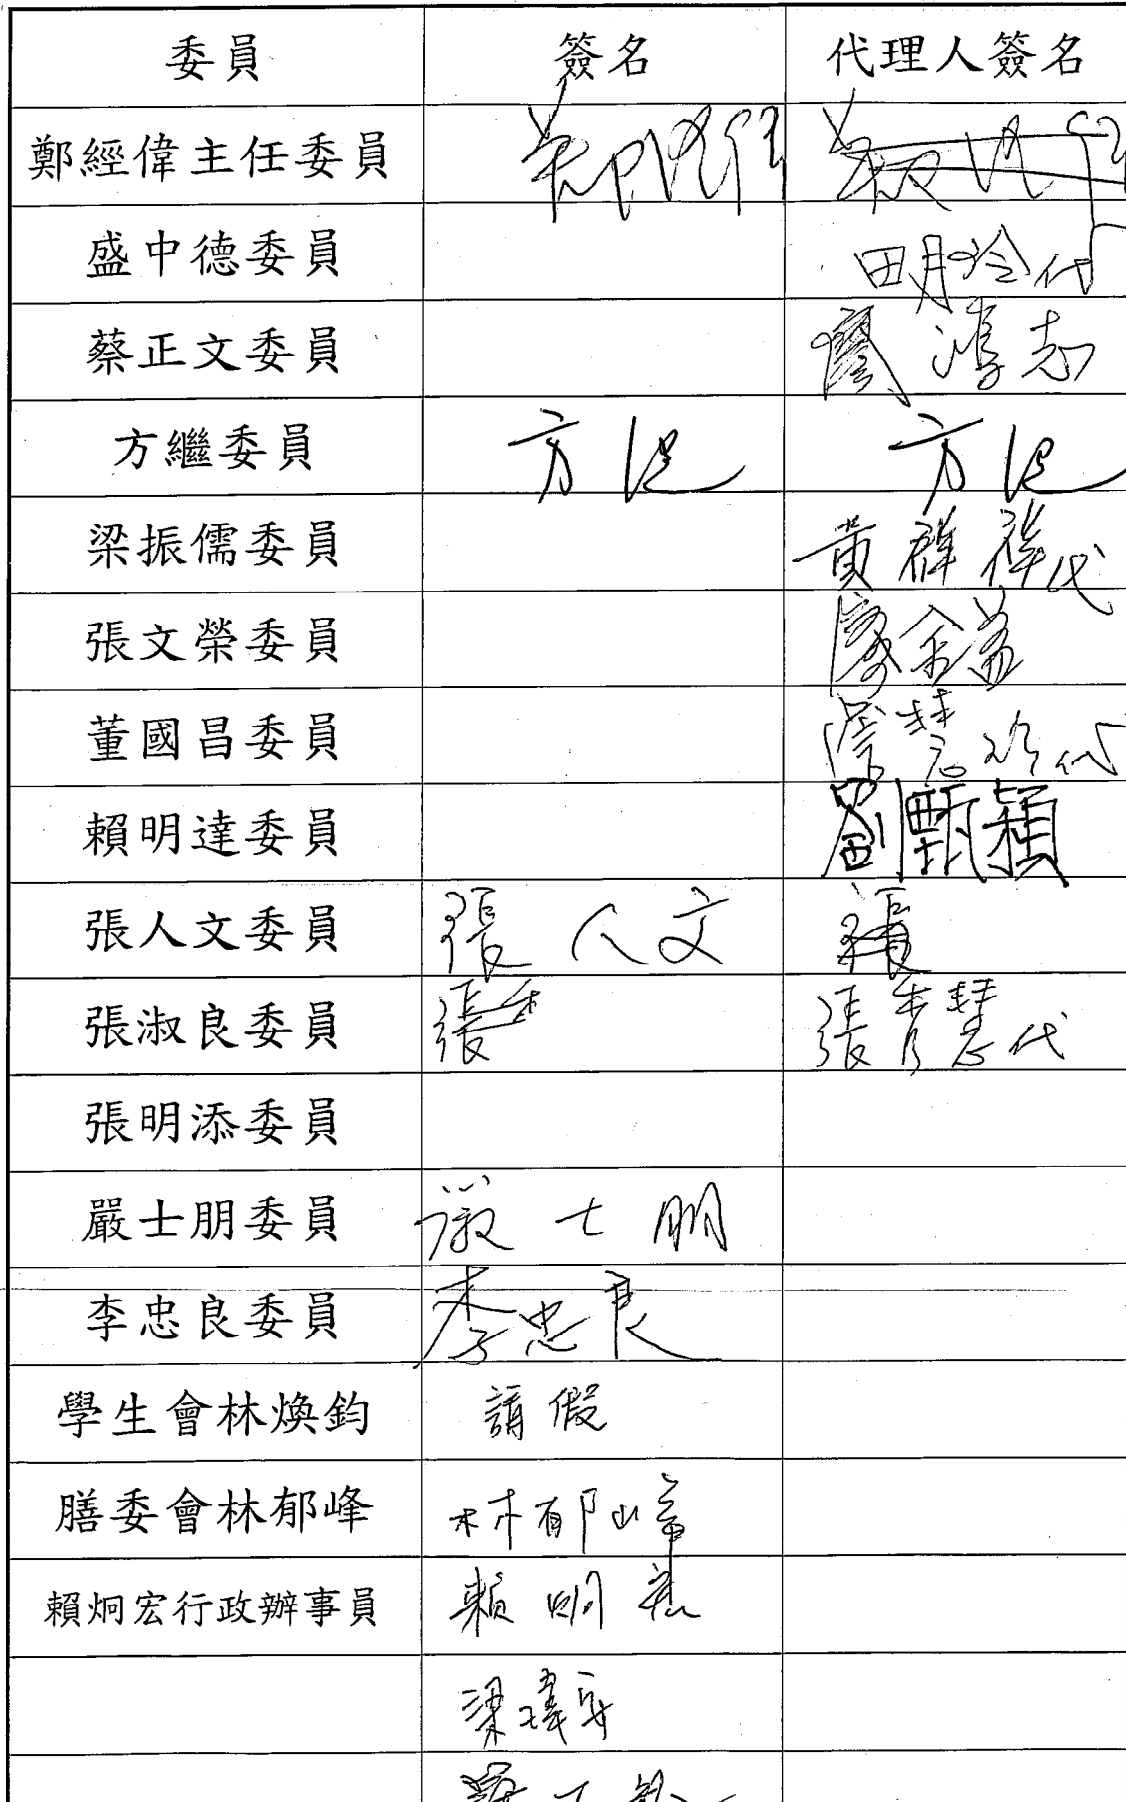 委員 簽名 代理人簽名
鄭經偉主任委員
盛中德委員 田月玲代
蔡正文委員 廖鴻志
方繼委員 方繼 方繼
梁振儒委員 黃群祥代
張文榮委員
董國昌委員 代
賴明達委員 劉甄穎
張人文委員 張人文 張
張淑良委員 張 張秀慧代
張明添委員
嚴士朋委員 嚴士朋
李忠良委員 李忠良
學生會林煥鈞 請假
膳委會林郁峰 林郁峰
賴炯宏行政辦事員 賴
梁瑋